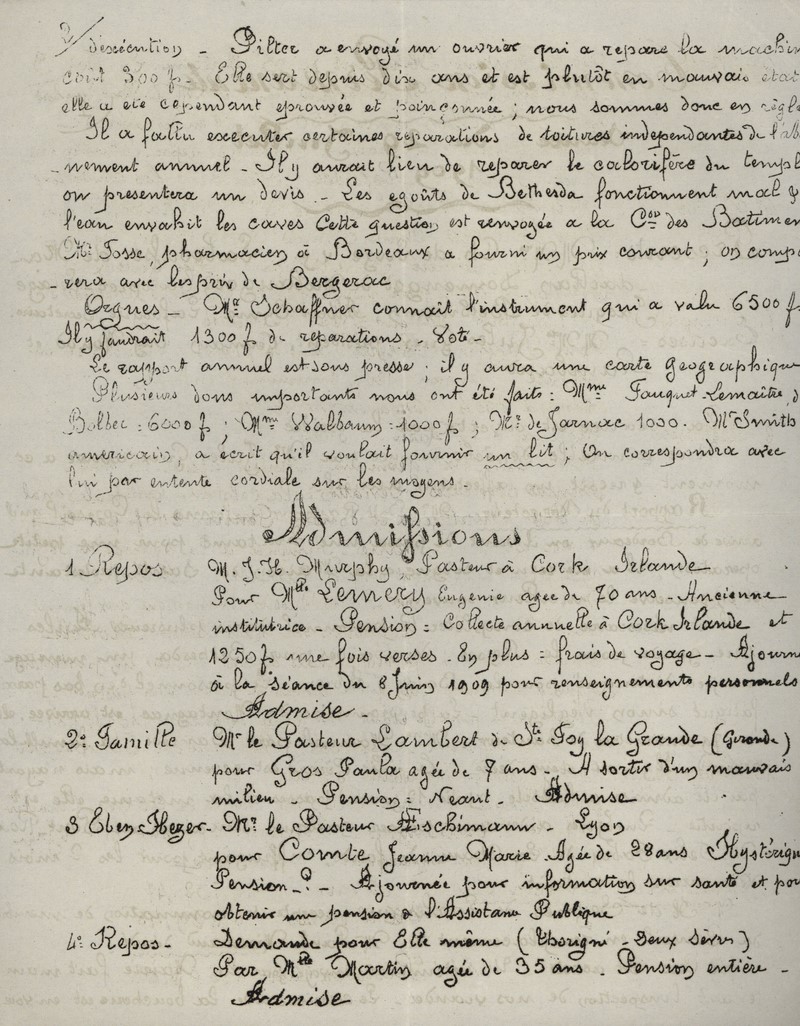 2/ d'exécution - Pilter a envoyé un ouvrier qui a reparé la machin
coût 300 f. Elle sert depuis dix ans et est plutôt en mauvais état
elle a été cependant eprouvée et poinçonnée ; nous sommes donc en règle
Il a fallu executer certaines reparations de toitures independantes de l'ab
-nement annuel - Il y aurait lieu de reparer le calorifère du templ
on presentera un devis - Les egoûts de Bethesda fonctionnent mal &
l'eau envahit les caves Cette question est renvoyée a la Con des Batimen
Mr Tosse, pharmacien à Bordeaux a fourni un prix courant ; on comp
-rera avec les prix de Bergerac
Orgues - Mr Schaffner connait l'instrument qui a valu 6500 f.
Il y faudrait 1300 f de reparations - Voté -
Le rapport annuel est sous presse ; il y aura une carte geographique
Plusieurs dons importants nous ont été faits : Mme Fauquet-Lemaître, d
Bolbec : 6000 f ; Mme Walbaum : 1000 f ; Mr de Jarnac 1000. Mr Smith
americain, a écrit qu'il voulait fournir un lit ; On correspondra avec
lui par entente cordiale sur les moyens.
Admissions
1 Repos M. J. H. Murphy, Pasteur à Cork Irlande
Pour Mlle Lemery Eugenie agee de 70 ans - Ancienne
institutrice - Pension : Collecte annuelle à Cork Irlande et
1250 f une fois versés. En plus : frais de voyage - Ajourn
à la séance du 8 Juin 1909 pour renseignements personnels
Admise -
2o Famille Mr le Pasteur Lambert de Ste Foy la Grande (Gironde)
pour Gros Paula agée de 7 ans - A sortir d'un mauvais
milieu - Pension : Neant - Admise
3 Eben-Hezer - Mr le Pasteur Æschimann - Lyon
pour Comte Jeanne Marie Agée de 28 ans Hystériqu
Pension - ? - Ajournée pour information sur santé et pou
obtenir une pension de l'Assistance Publique
4o Repos - Demande pour Elle même (Thorigné - Deux Sèvres)
Par Mlle Martin agée de 35 ans - Pension entière -
Admise